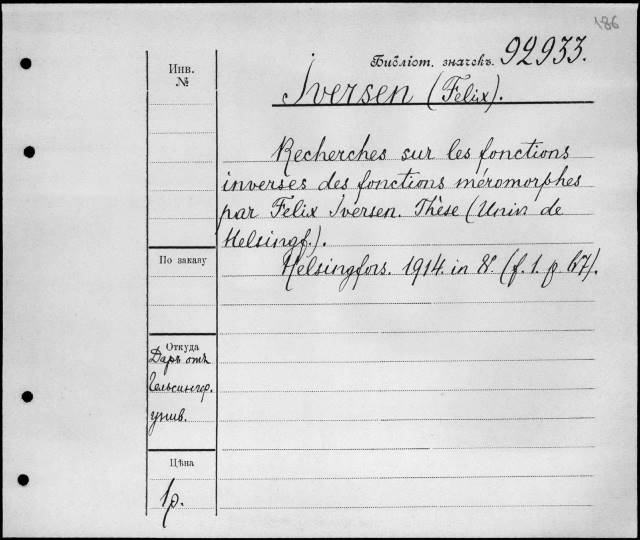 186
Библіот. значекъ. 92933.
Инв.
№
Iversen (Felix).
Recherches sur les fonctions
inverses des fonctions méromorphes
par Felix Iversen. Thèse (Univ. de
Helsingf.).
Helsingfors. 1914. in 8°. (f. 1. p. 67).
По заказу
Откуда
Даръ отъ
Гельсингф.
унив.
Цѣна
1р.